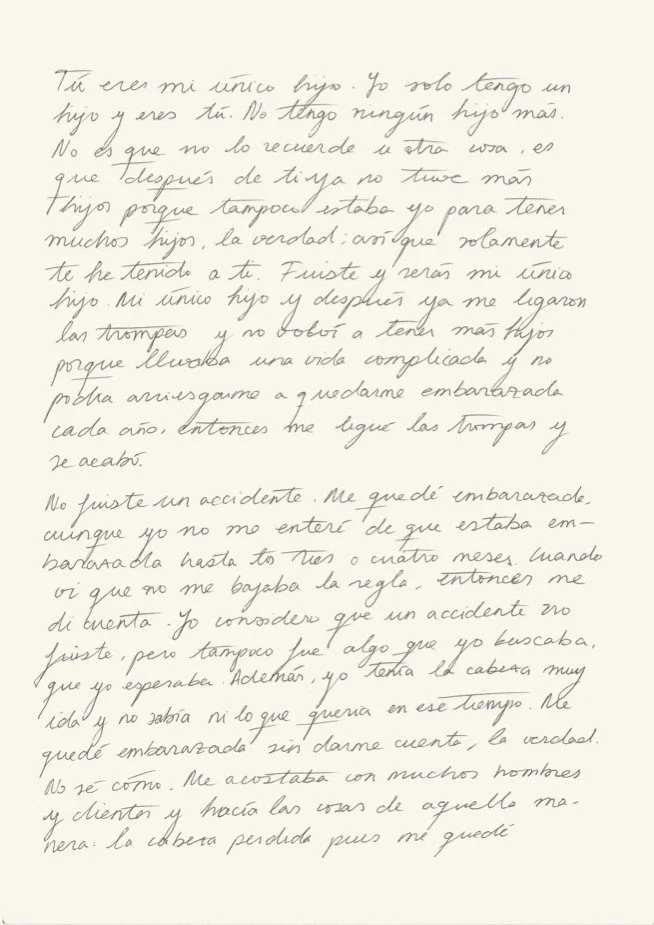 Tú eres mi único hijo. Yo solo tengo un
hijo y eres tú. No tengo ningún hijo más.
No es que no lo recuerde u otra cosa, es
que después de ti ya no tuve más
hijos porque tampoco estaba yo para tener
muchos hijos, la verdad; así que solamente
te he tenido a ti. Fuiste y serás mi único
hijo. Mi único hijo y después ya me ligaron
las trompas y no volví a tener más hijos
porque llevaba una vida complicada y no
podía arriesgarme a quedarme embarazada
cada año, entonces me ligué las trompas y
se acabó.
No fuiste un accidente. Me quedé embarazada,
aunque yo no me enteré de que estaba em-
barazada hasta los tres o cuatro meses. Cuando
vi que no me bajaba la regla, entonces me
di cuenta. Yo considero que un accidente no
fuiste, pero tampoco fue algo que yo buscaba,
que yo esperaba. Además, yo tenía la cabeza muy
ida y no sabía ni lo que quería en ese tiempo. Me
quedé embarazada sin darme cuenta, la verdad.
No sé cómo. Me acostaba con muchos hombres
y clientes y hacía las cosas de aquella ma-
nera: la cabeza perdida pues me quedé